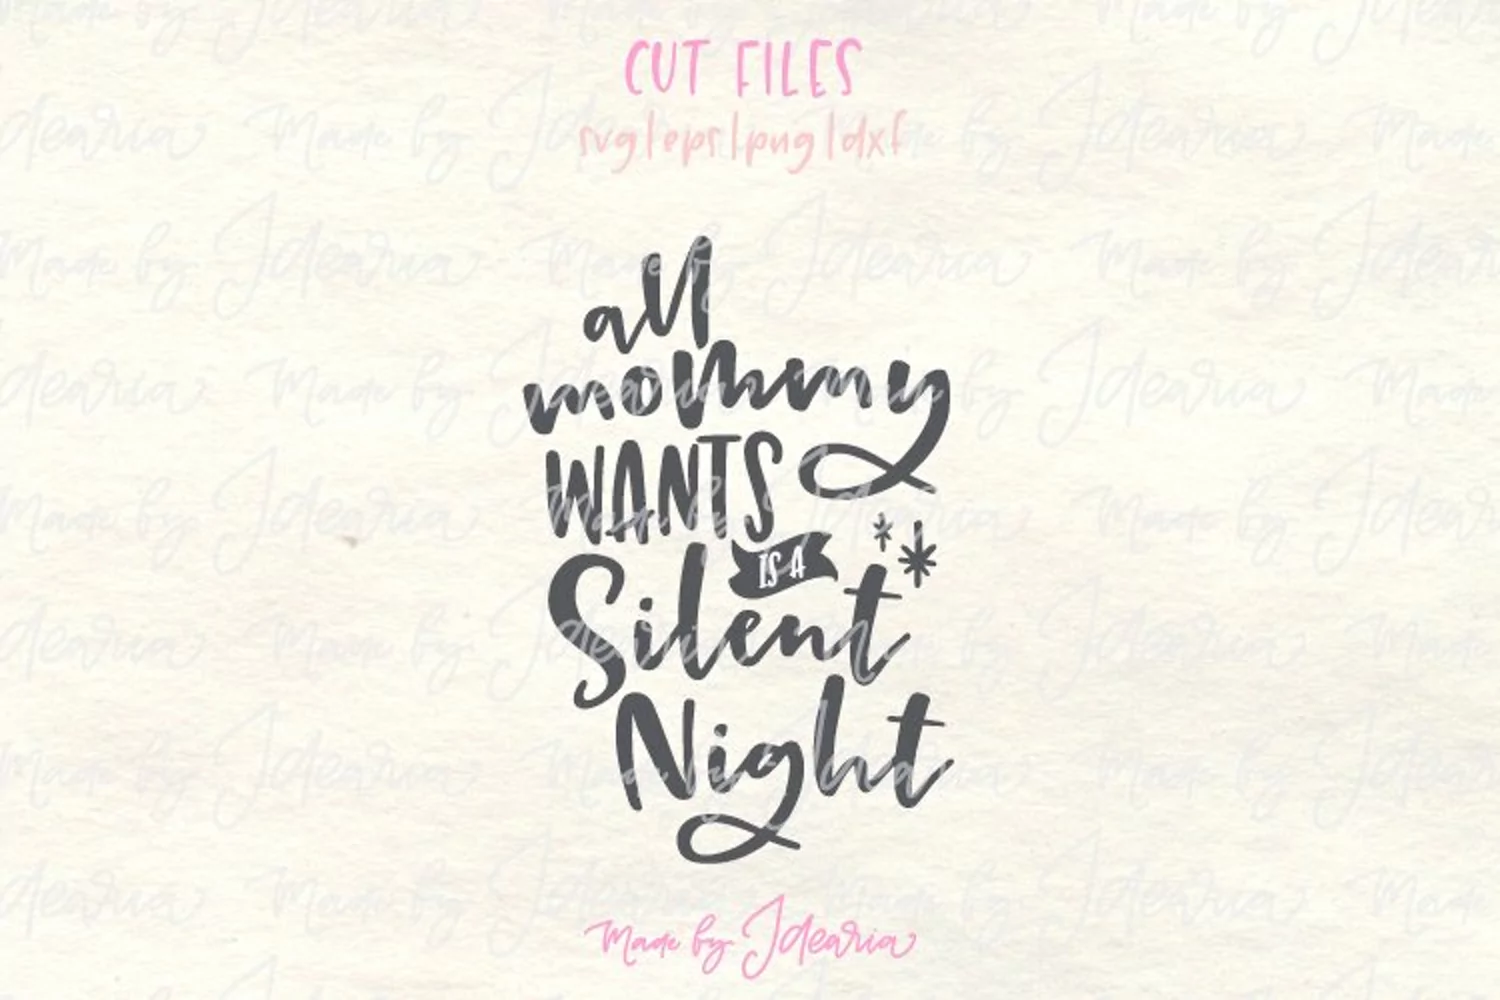 CUT FILES
svg|eps|png|dxf
all
mommy
WANTS
IS A
Silent
Night
Made by Idearia